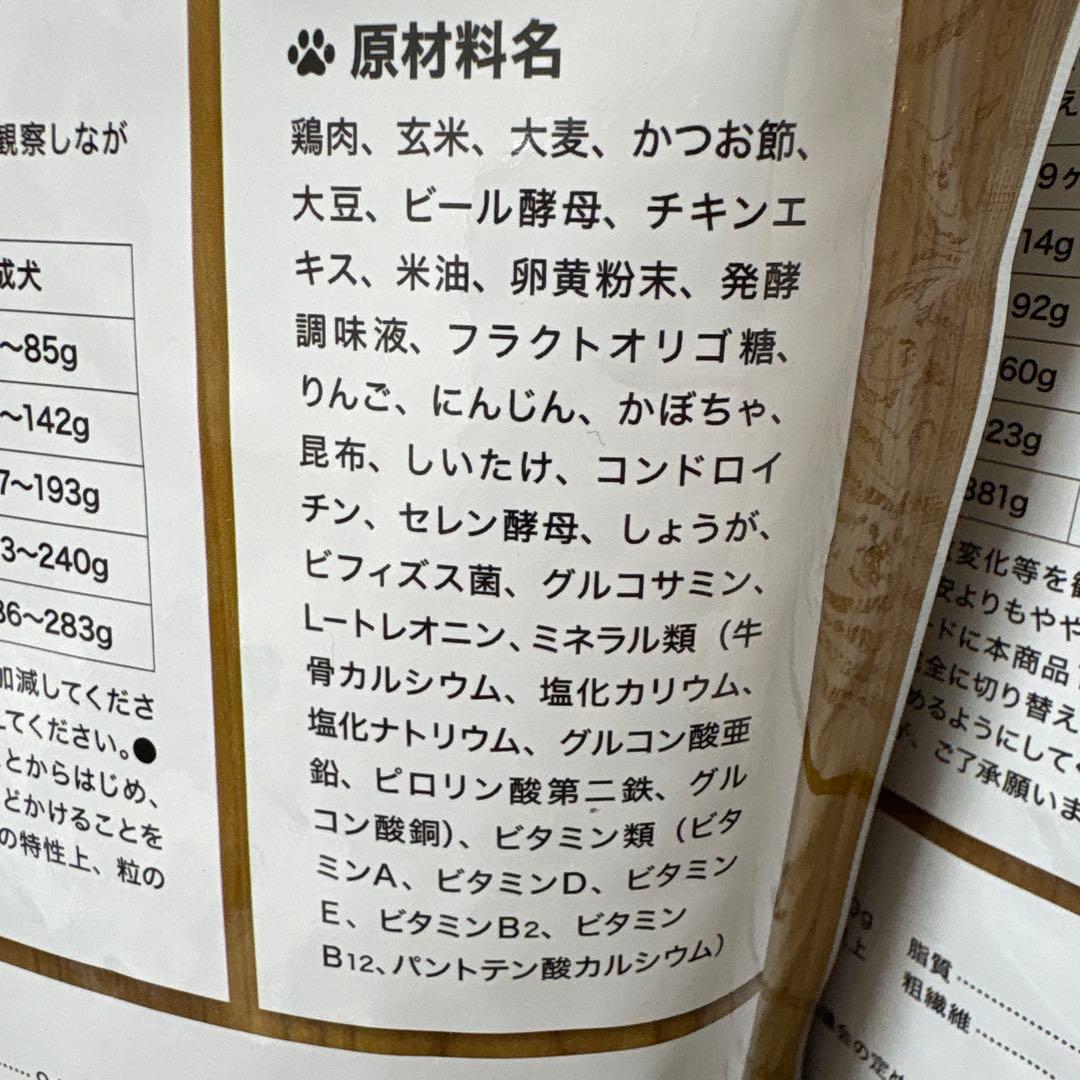 原材料名
鶏肉、玄米、大麦、かつお節、
大豆、ビール酵母、チキンエ
キス、米油、卵黄粉末、発酵
調味液、フラクトオリゴ糖、
りんご、にんじん、かぼちゃ、
昆布、しいたけ、コンドロイ
チン、セレン酵母、しょうが、
ビフィズス菌、グルコサミン、
L-トレオニン、ミネラル類（牛
骨カルシウム、塩化カリウム、
塩化ナトリウム、グルコン酸亜
鉛、ピロリン酸第二鉄、グル
コン酸銅）、ビタミン類（ビタ
ミンA、ビタミンD、ビタミン
E、ビタミンB2、ビタミン
B12、パントテン酸カルシウム）
観察しなが
成犬
〜85g
〜142g
7〜193g
3〜240g
36〜283g
加減してくださ
てください。●
とからはじめ、
どかけることを
の特性上、粒の
え
9ヶ
14g
92g
60g
23g
381g
変化等を
よりもやや
ドに本商品
全に切り替え
めるようにして
、ご了承願いま
0g
上
脂質
粗繊維
の定め